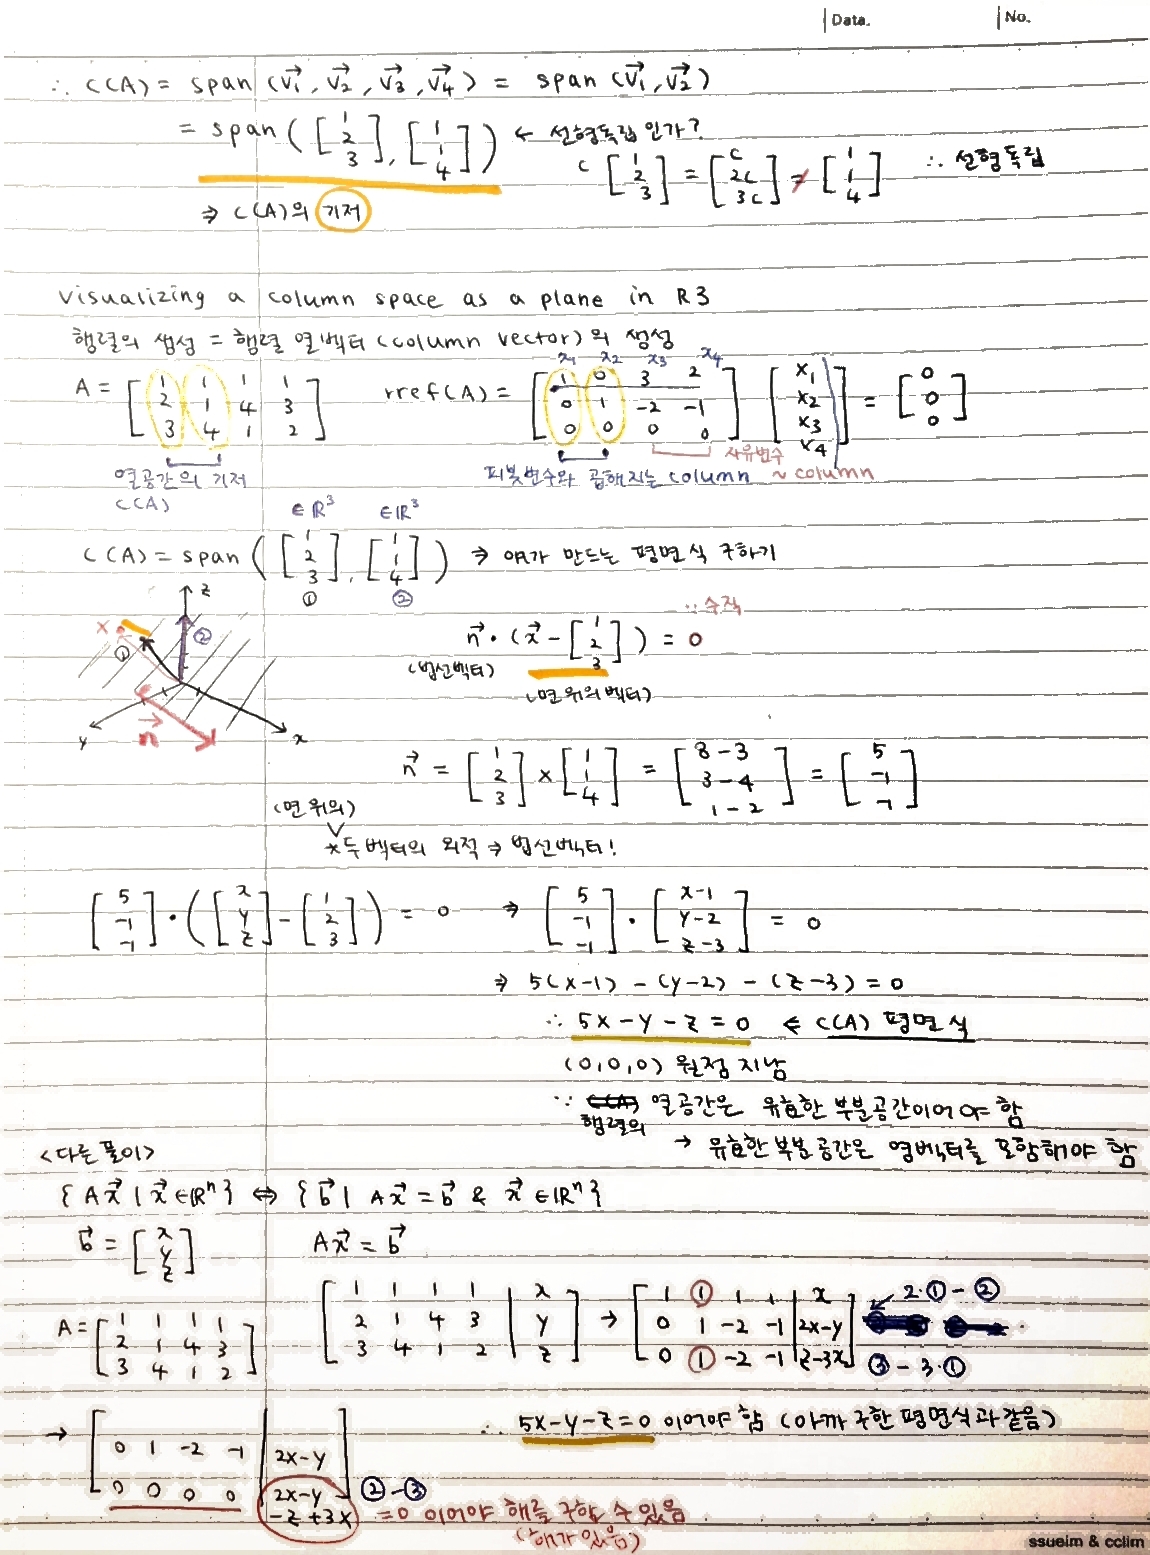 Data. No.
∴ C(A) = span (v₁⃗, v₂⃗, v₃⃗, v₄⃗) = span (v₁⃗, v₂⃗)
= span ( [1 2 3], [1 1 4] ) ← 선형독립인가?
c [1 2 3] = [c 2c 3c] ≠ [1 1 4] ∴ 선형독립
⇒ C(A)의 기저
visualizing a column space as a plane in R3
행렬의 생성 = 행렬 열벡터 (column vector)의 생성
x₁ x₂ x₃ x₄
A = [1 1 1 1; 2 1 4 3; 3 4 1 2] rref(A) = [1 0 3 2; 0 1 -2 -1; 0 0 0 0] [x₁ x₂ x₃ x₄] = [0 0 0]
자유변수
열공간의 기저 피봇변수와 곱해지는 column ~ column
C(A)
∈ℝ³ ∈ℝ³
C(A) = span ( [1 2 3], [1 1 4] ) ⇒ 얘가 만드는 평면식 구하기
① ②
z
x ① ②
y x
n⃗
∵ 수직
n⃗ • (x⃗ - [1 2 3]) = 0
(법선벡터)
(면 위의 벡터)
n⃗ = [1 2 3] × [1 1 4] = [8-3 3-4 1-2] = [5 -1 -1]
(면 위의)
* 두 벡터의 외적 ⇒ 법선벡터!
[5 -1 -1] • ([x y z] - [1 2 3]) = 0 ⇒ [5 -1 -1] • [x-1 y-2 z-3] = 0
⇒ 5(x-1) - (y-2) - (z-3) = 0
∴ 5x-y-z = 0 ⇐ C(A) 평면식
(0,0,0) 원점 지남
∵ 행렬의 열공간은 유효한 부분공간이어야 함
→ 유효한 부분공간은 영벡터를 포함해야 함
<다른 풀이>
{Ax⃗ | x⃗ ∈ℝⁿ} ⇔ {b⃗ | Ax⃗ = b⃗ & x⃗ ∈ℝⁿ}
b⃗ = [x y z] Ax⃗ = b⃗
A = [1 1 1 1; 2 1 4 3; 3 4 1 2] [1 1 1 1 | x; 2 1 4 3 | y; 3 4 1 2 | z] → [1 1 1 1 | x; 0 1 -2 -1 | 2x-y; 0 1 -2 -1 | z-3x]
2·①-②
③-3·①
→ [0 1 -2 -1 | 2x-y; 0 0 0 0 | 2x-y-z+3x] ②-③
∴ 5x-y-z=0 이어야 함 (아까 구한 평면식과 같음)
=0 이어야 해를 구할 수 있음
(해가 있음)
ssueim & cclim